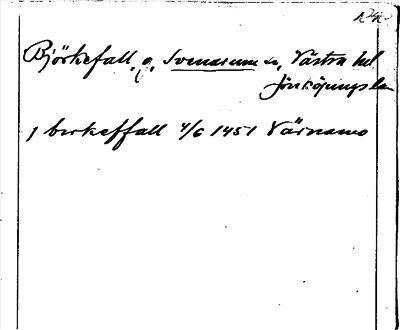 Björkefall, g, Svenarum sn, Västra hd
Jönköpings län
j berkeffall 4/6 1451 Värnamo